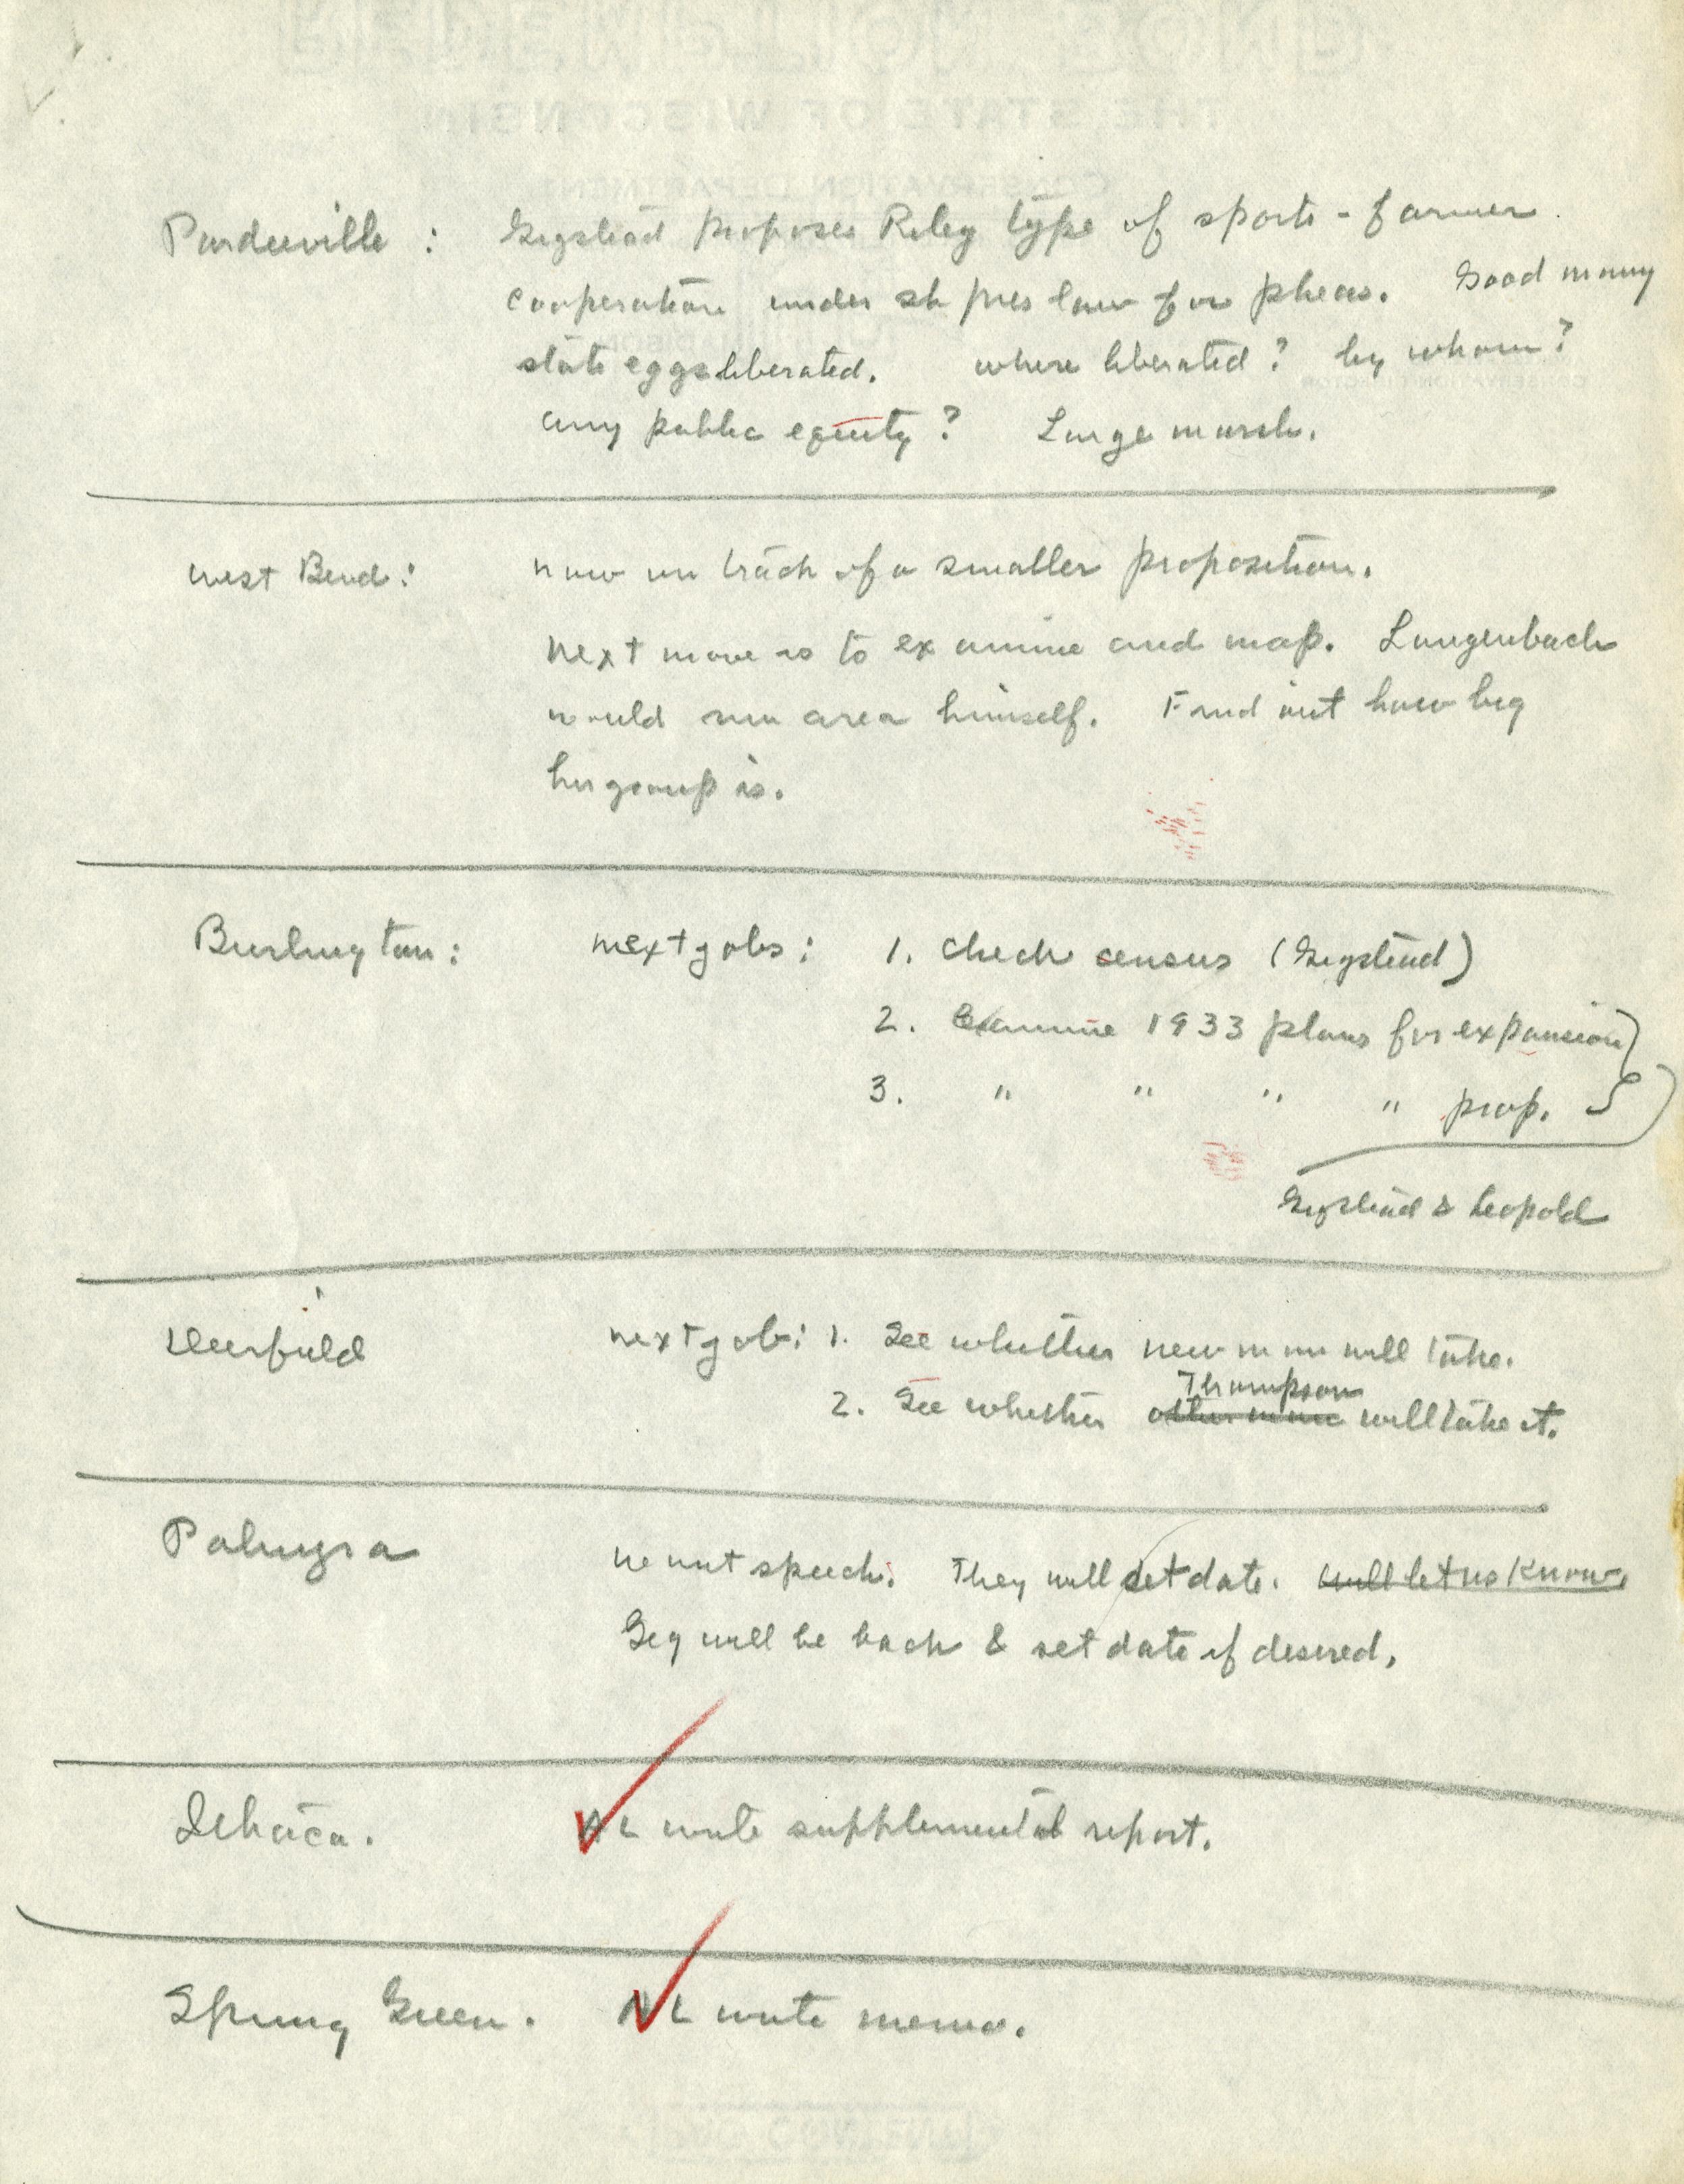 Pardeeville : Gigstead proposes Riley type of sports-farmer
cooperation under sh pres law for pheas. Good many
state eggs liberated. where liberated? by whom?
any public equity? Large marsh.
West Bend: now on track of a smaller proposition.
next move is to examine and map. Langenbach
would run area himself. Find out how big
his group is.
Burlington: next jobs: 1. Check census (Gigstead)
2. Examine 1933 plans for expansion
3. " " " " prop.
Gigstead & Leopold
Deerfield next job: 1. See whether new man will take.
Thompson
2. See whether other man will take it.
Palmyra want speech. They will set date. will let us know
Gig will be back & set date if desired.
Ithaca. AL write supplemental report.
Spring Green. AL write memo.
THE STATE OF WISCONSIN
CONSERVATION DEPARTMENT
CONSERVATION DIRECTOR